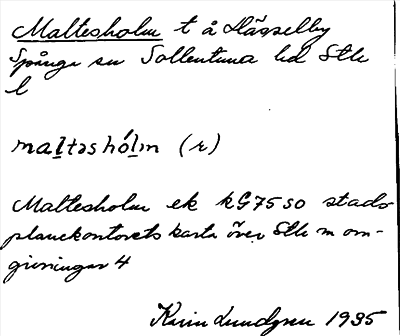 Maltesholm t å Hässelby
Spånga sn Sollentuna hd Sthlm
l
maltəshólm (r)
Maltesholm ek kG75SO stads-
plankontorets karta över Sthlm m om-
givningar 4
Karin Lundgren 1935